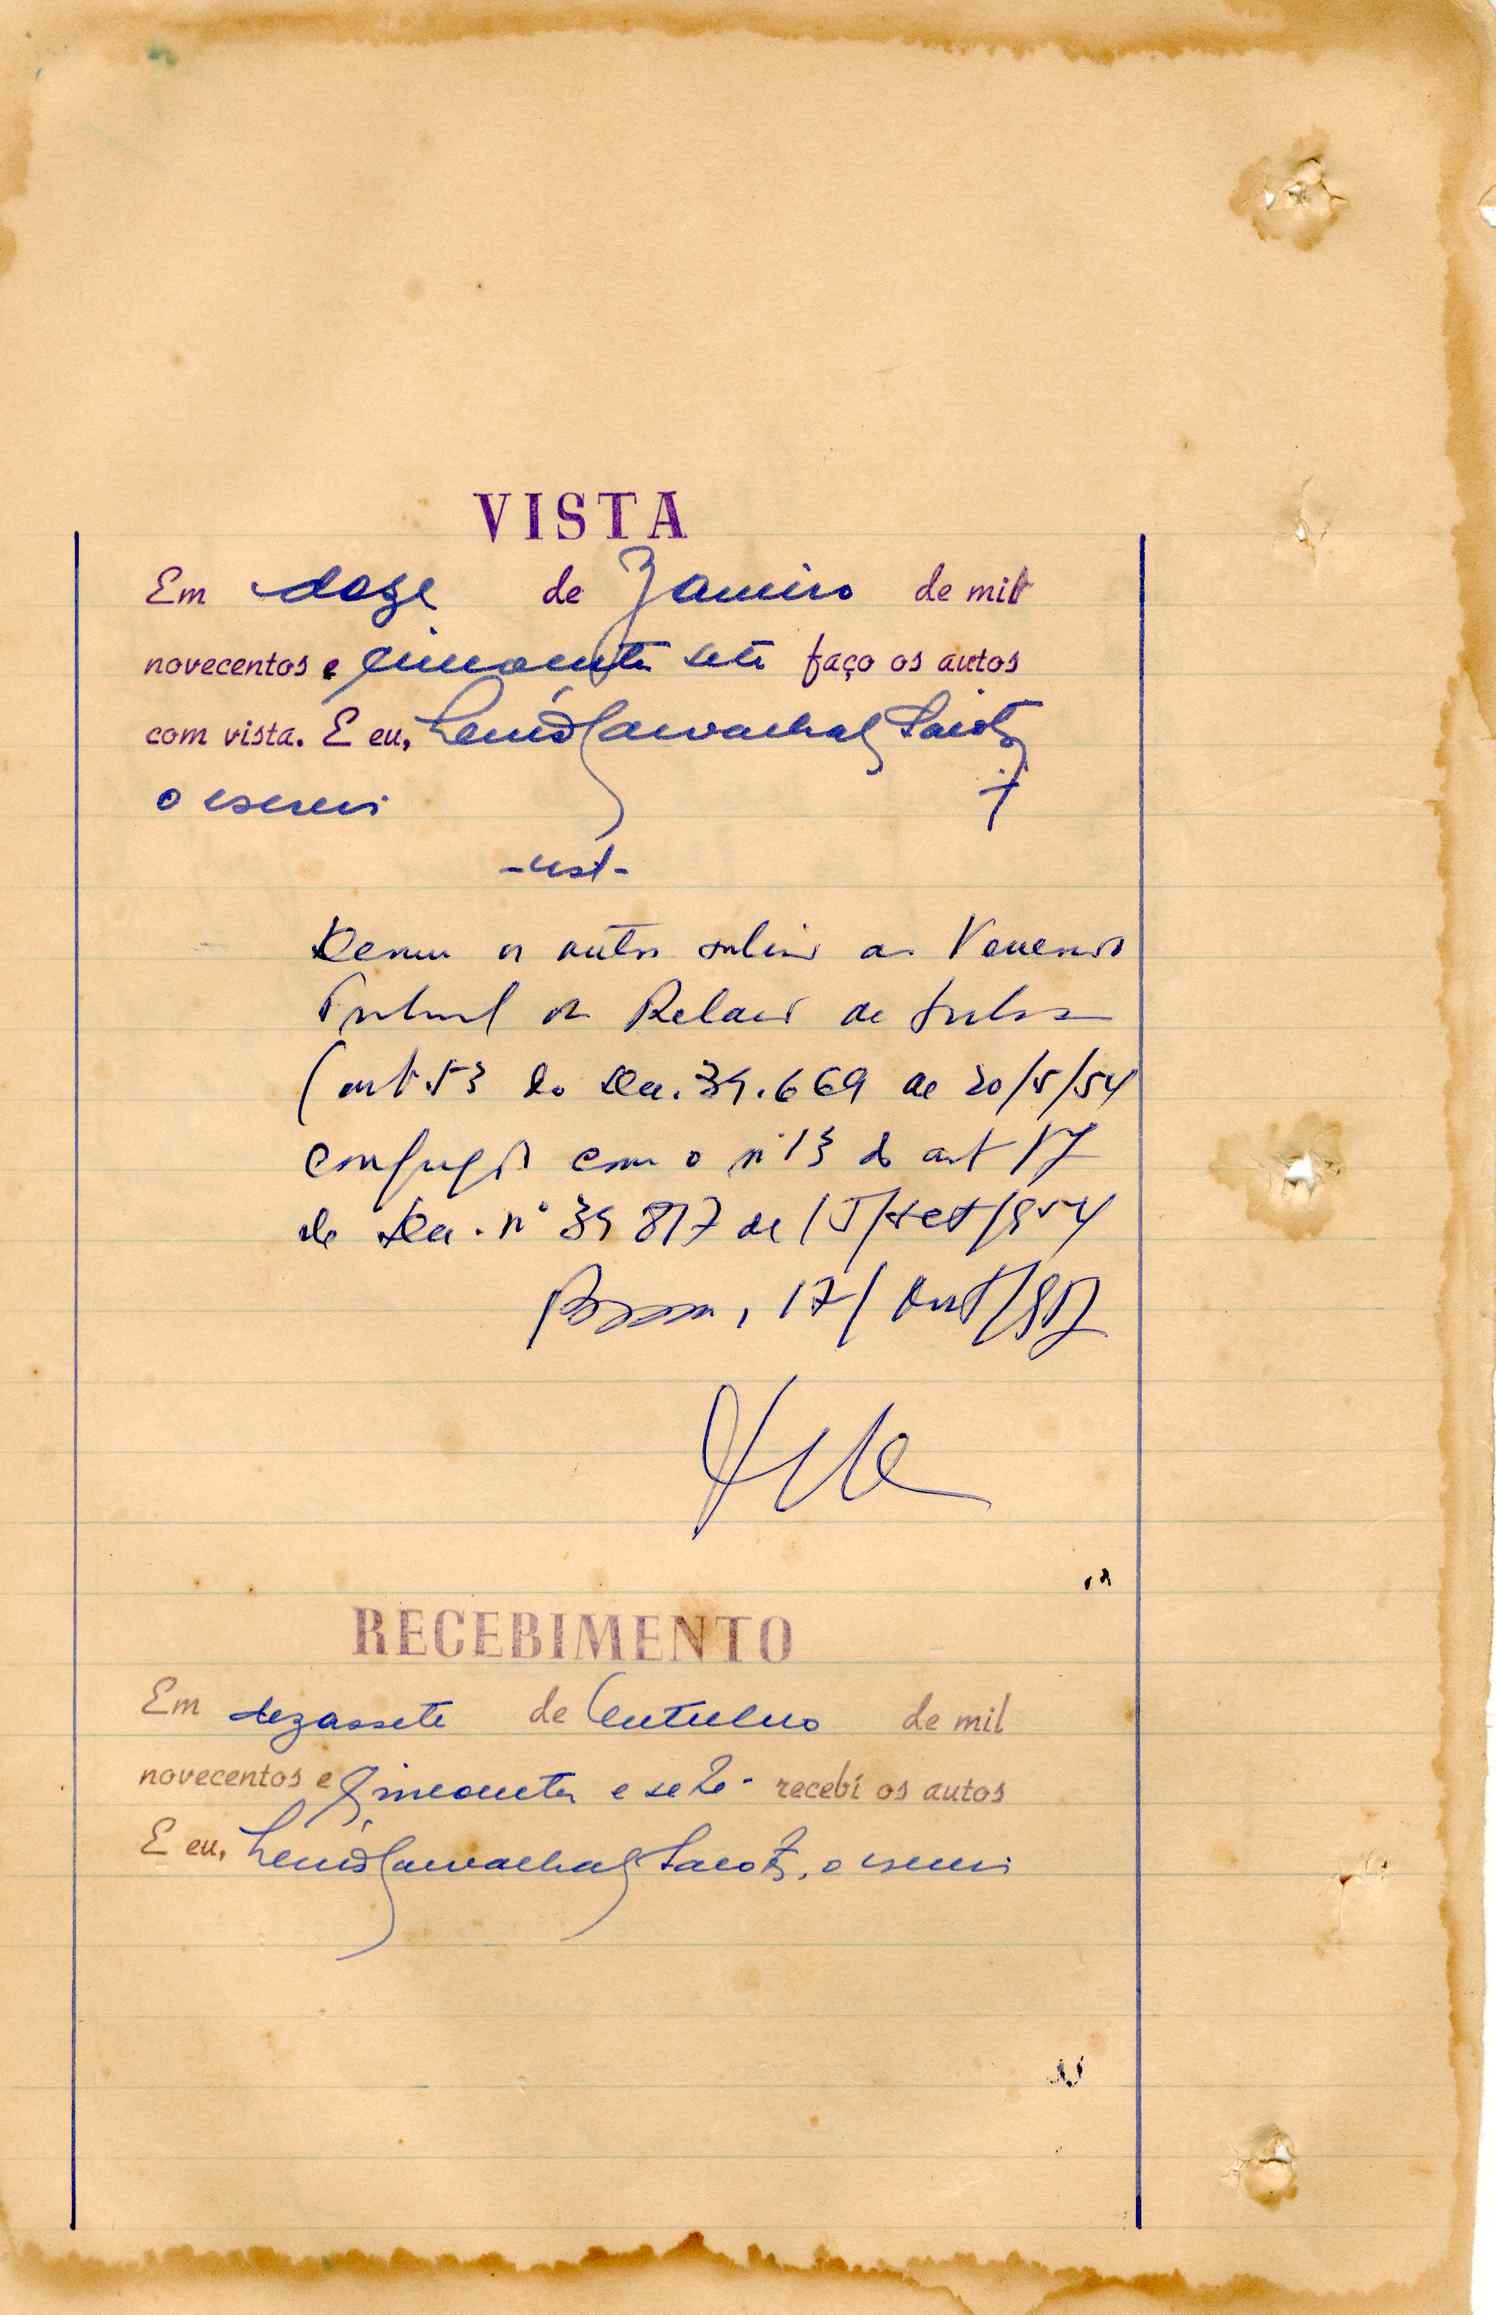 VISTA
Em doze de Janeiro de mil
novecentos e cincoenta sete faço os autos
com vista. E eu, Carvalhal
o escrevi
-vist-
Devem os autos subir ao Venerando
Tribunal da Relação de
(art 53 do Dec. 39.669 de 20/5/54
conjugado com o nº 13 do art 17
do Dec. nº 39 817 de 15/set/954
, 17/Out/957
RECEBIMENTO
Em dezassete de Outubro de mil
novecentos e Cincoenta e sete - recebi os autos
E eu, Carvalhal , o escrevi